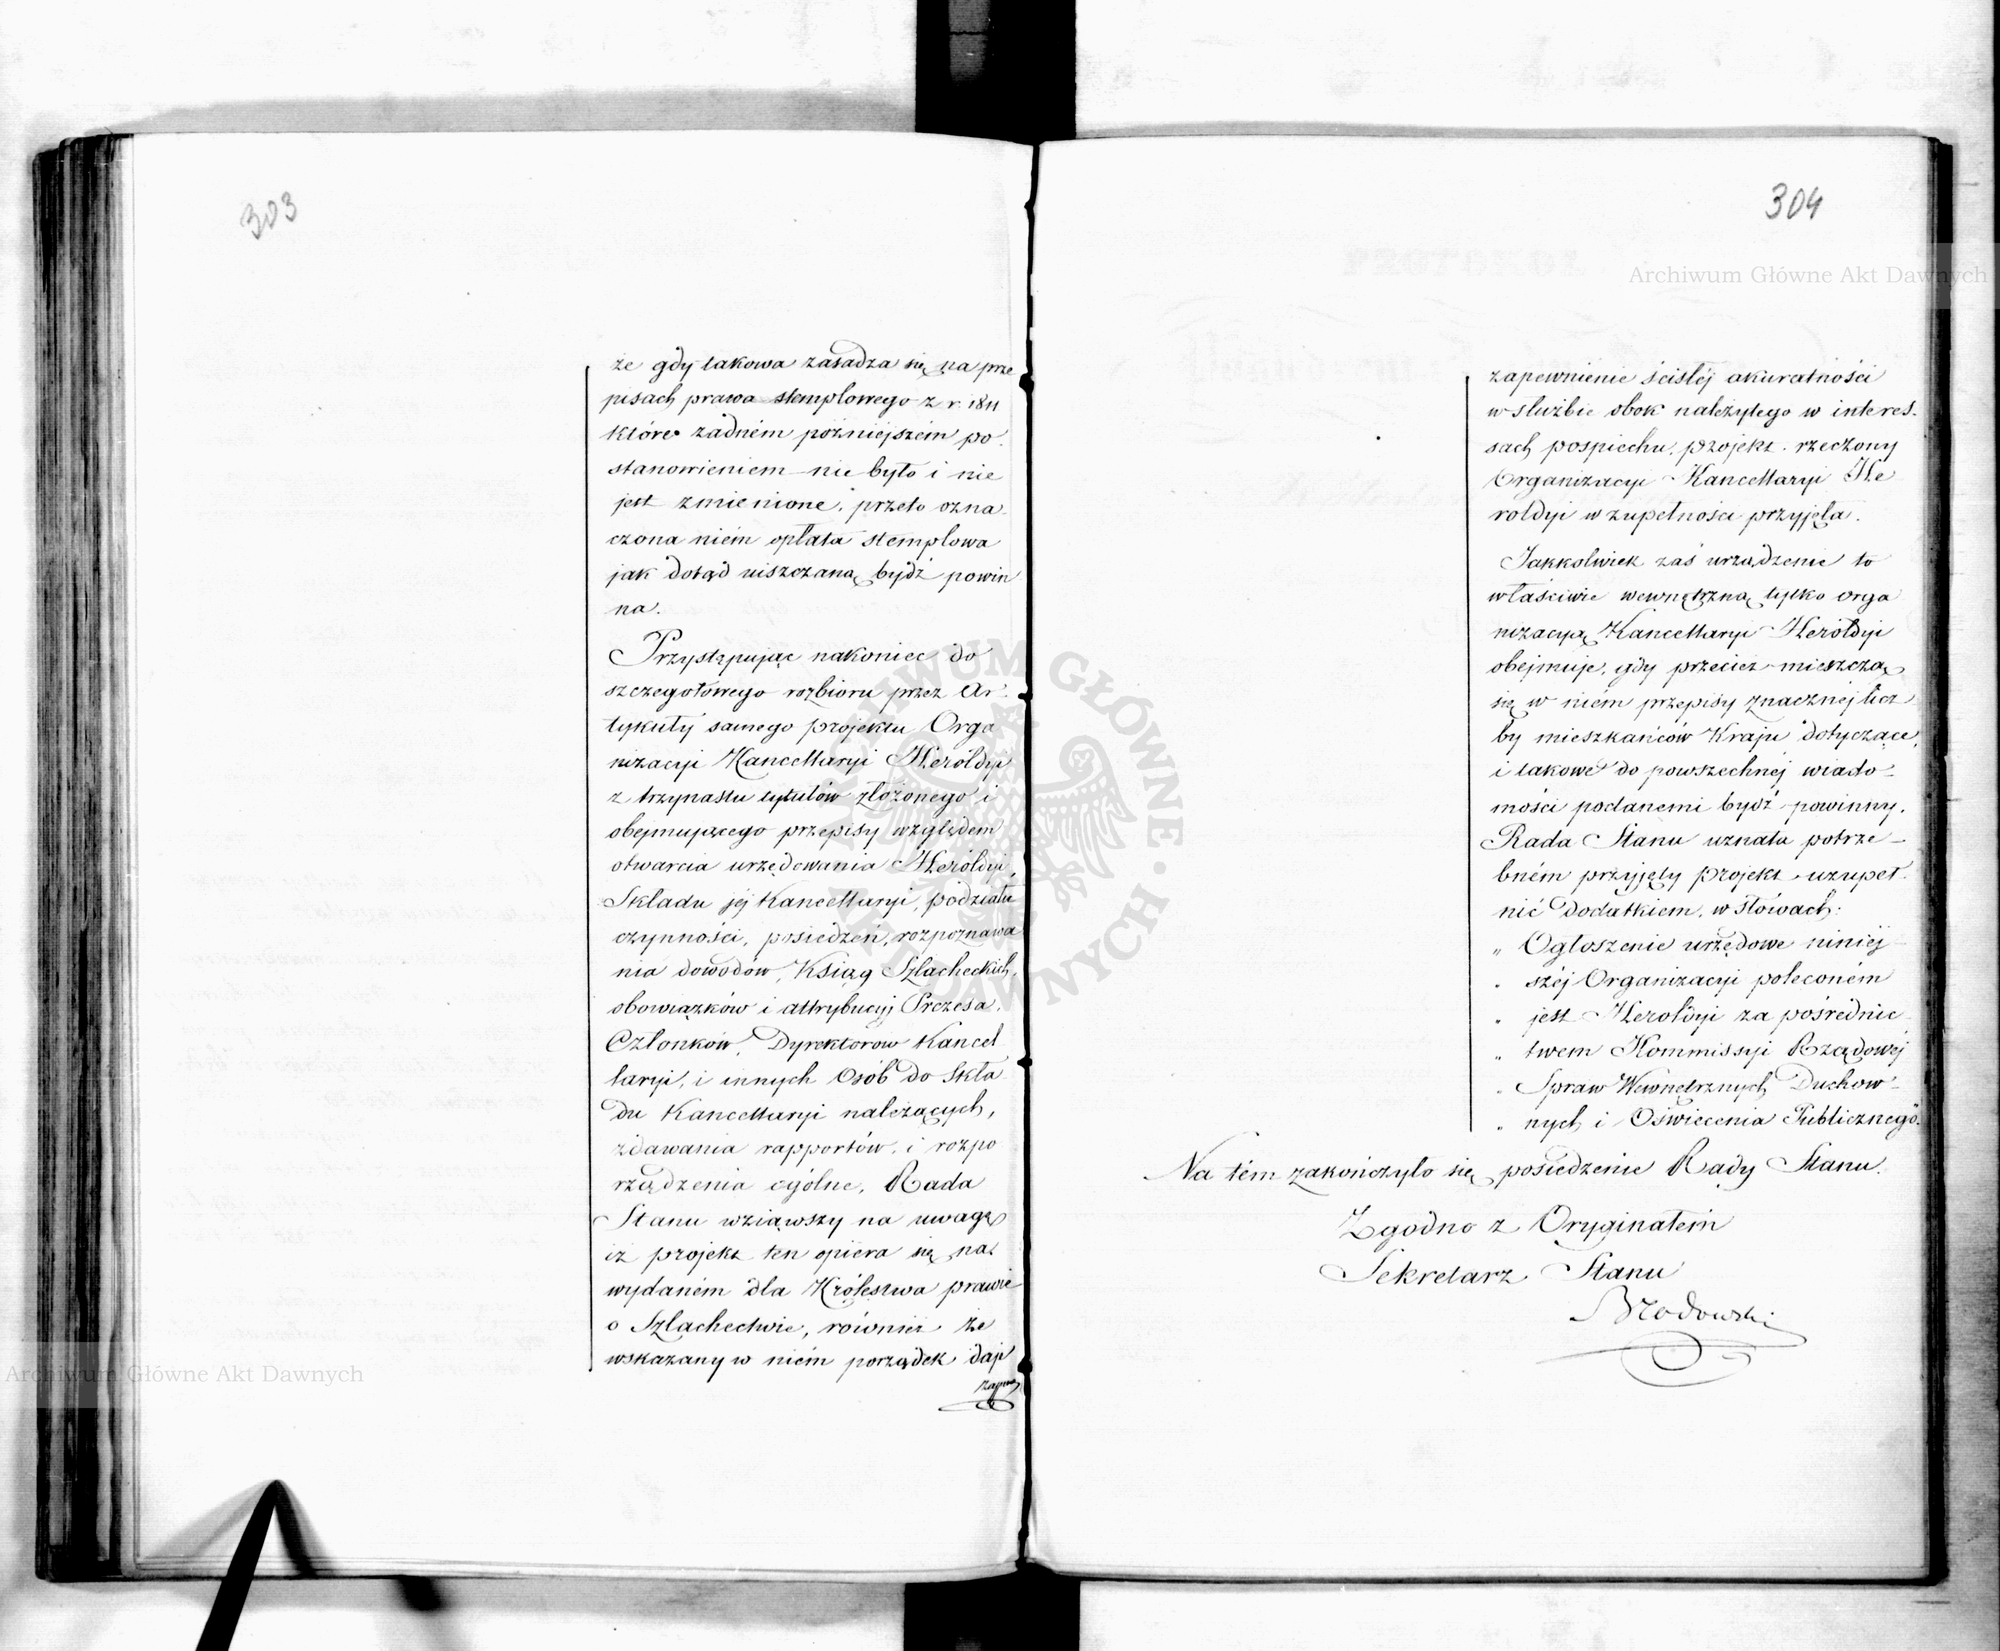 303
że gdy takowa zasadza się na prze
pisach prawa stemplowego z r. 1811
które żadném późniejszém po
stanowieniem nie było i nie
jest zmienione, przeto ozna
czona niém opłata stemplowa
jak dotąd uiszczaną bydź powin
na.
Przystępując nakoniec do
szczegółowego rozbioru przez Ar
tykuły samego projektu Orga
nizacyi Kancellaryi Heroldyi
z trzynastu tytułów złożonego i
obejmującego przepisy względem
otwarcia urzędowania Heroldyi,
Składu jéj Kancellaryi, podziału
czynności, posiedzeń, rozpoznawa
nia dowodów, Ksiąg Szlacheckich,
obowiązków i attrybucyj Prezesa,
Członków, Dyrektorow Kancel
laryi, i innych Osób do Skła
du Kancellaryi należących,
zdawania rapportów, i rozpo
rządzenia ogólne, Rada
Stanu wziąwszy na uwagę
iż projekt ten opiera się na
wydaném dla Królestwa prawie
o Szlachectwie, również że
wskazany w niém porządek daje
zapew
304
zapewnienie ścisłéj akuratności
w służbie obok należytego w interes-
sach pospiechu, projekt rzeczony
Organizacyi Kancellaryi He
roldyi w zupełności przyjęła.
Jakkolwiek zaś urządzenie to
właściwie wewnętrzną tylko orga
nizacyą Kancellaryi Heroldyi
obejmuje, gdy przecież mieszczą
się w niém przepisy znacznéj licz
by mieszkańców Kraju dotyczące,
i takowe do powszechnéj wiado-
mości podanemi bydź powinny,
Rada Stanu uznała potrze-
bném przyjęty projekt uzupeł-
nić dodatkiem, w słowach:
„ Ogłoszenie urzędowe niniéj-
„ széj Organizacyi poleconém
„ jest Heroldyi za pośrednic
„ twem Kommissyi Rządowéj
„ Spraw Wewnętrznych Duchow-
„ nych i Oświecenia Publicznego.
Na tém zakończyło się posiedzenie Rady Stanu.
Zgodno z Oryginałem
Sekretarz Stanu
Brodowski
Archiwum Główne Akt Dawnych
Archiwum Główne Akt Dawnych
ARCHIWUM GŁÓWNE AKT DAWNYCH